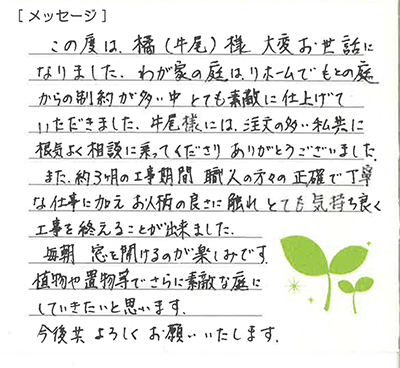 [メッセージ]
この度は、橘(牛尾)様 大変お世話に
なりました。わが家の庭は、リホームでもとの庭
からの制約が多い中とても素敵に仕上げて
いただきました。牛尾様には、注文の多い私共に
根気よく相談に乗ってくださり ありがとうございました。
また、約3ヶ月の工事期間 職人の方々の正確で丁寧
な仕事に加え お人柄の良さに触れ とても気持ち良く
工事を終えることが出来ました。
毎朝 窓を開けるのが楽しみです。
植物や置物等でさらに素敵な庭に
していきたいと思います。
今後共 よろしく お願いいたします。